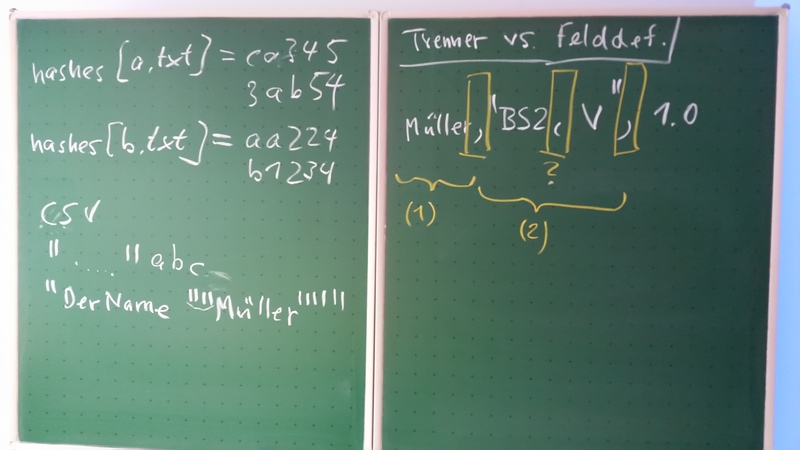 hashes [a.txt] = ca345
3ab54
hashes [b.txt] = aa224
b1234
CSV
"....." abc
"Der Name """Müller""""""
Trenner vs. Felddef.
Müller, "BS2, V", 1.0
?
(1) (2)